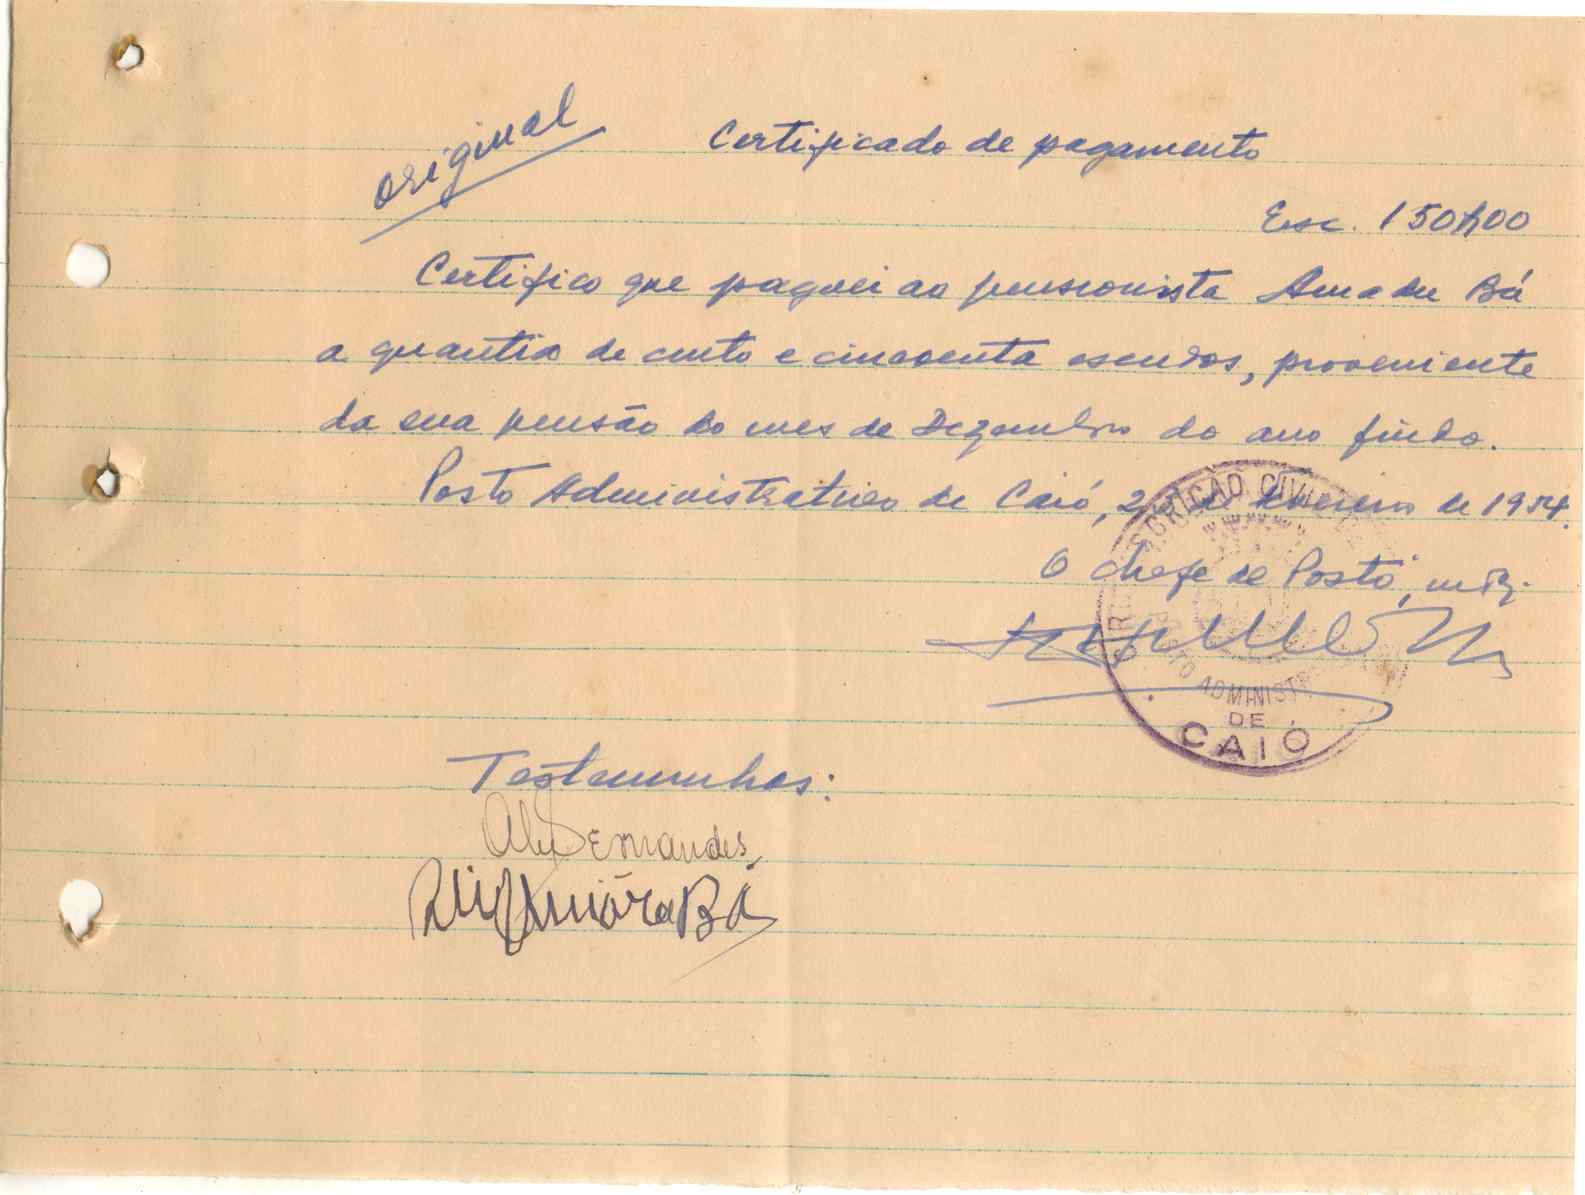 original
Certificado de pagamento
Esc. 150$00
Certifico que paguei ao pensionista Amadu Bá
a quantia de cento e cincoenta escudos, proveniente
da sua pensão do mes de Dezembro do ano findo.
Posto Administrativo de Caió, de Fevereiro de 1954.
O chefe de Posto,
CIRCUNSCRIÇÃO CIVIL
POSTO ADMINISTRATIVO
DE
CAIÓ
Testemunhas:
Fernandes
Bá